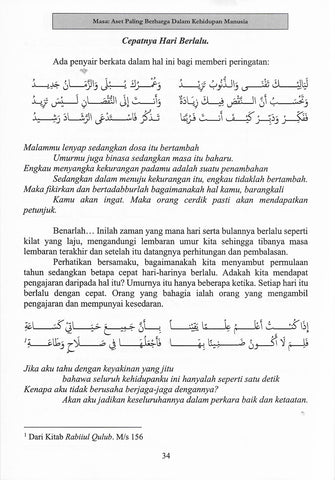 Masa: Aset Paling Berharga Dalam Kehidupan Manusia
Cepatnya Hari Berlalu.
Ada penyair berkata dalam hal ini bagi memberi peringatan:
لَيَالِيْكَ تَفْنَى وَالذُّنُوبُ تَزِيْدُ وَعُمْرُكَ يَبْلَى وَالزَّمَانُ جَدِيدُ
وَتَحْسَبُ أَنَّ النَّقْصَ فِيكَ زِيَادَةٌ وَأَنْتَ إِلَى النُّقْصَانِ لَيْسَ تَزِيْدُ
فَفَكِّرْ وَدَبِّرْ كَيْفَ أَنْتَ فَرُبَّمَا تَذَكَّرُ فَاسْتَدْعَى الرَّشَادَ رَشِيدُ
Malammu lenyap sedangkan dosa itu bertambah
Umurmu juga binasa sedangkan masa itu baharu.
Engkau menyangka kekurangan padamu adalah suatu penambahan
Sedangkan dalam menuju kekurangan itu, engkau tidaklah bertambah.
Maka fikirkan dan bertadabburlah bagaimanakah hal kamu, barangkali
Kamu akan ingat. Maka orang cerdik pasti akan mendapatkan
petunjuk.
Benarlah… Inilah zaman yang mana hari serta bulannya berlalu seperti
kilat yang laju, mengandungi lembaran umur kita sehingga tibanya masa
lembaran terakhir dan setelah itu datangnya perhitungan dan pembalasan.
Perhatikan bersamaku, bagaimanakah kita menyambut permulaan
tahun sedangkan betapa cepat hari-harinya berlalu. Adakah kita mendapat
pengajaran daripada hal itu? Umurnya itu hanya beberapa ketika. Setiap hari itu
berlalu dengan cepat. Orang yang bahagia ialah orang yang mengambil
pengajaran dan mempunyai kesedaran.
إِذَا كُنْتُ أَعْلَمُ عِلْمًا يَقِيْنًا بِأَنَّ جَمِيعَ حَيَاتِي كَسَاعَةٍ
فَلِمَ لَا أَكُونُ ضَنِينًا بِهَا فَأَجْعَلُهَا فِي صَلَاحٍ وَطَاعَةٍ¹
Jika aku tahu dengan keyakinan yang jitu
bahawa seluruh kehidupanku ini hanyalah seperti satu detik
Kenapa aku tidak berusaha berjaga-jaga dengannya?
Akan aku jadikan keseluruhannya dalam perkara baik dan ketaatan.
¹ Dari Kitab Rabiiul Qulub. M/s 156
34